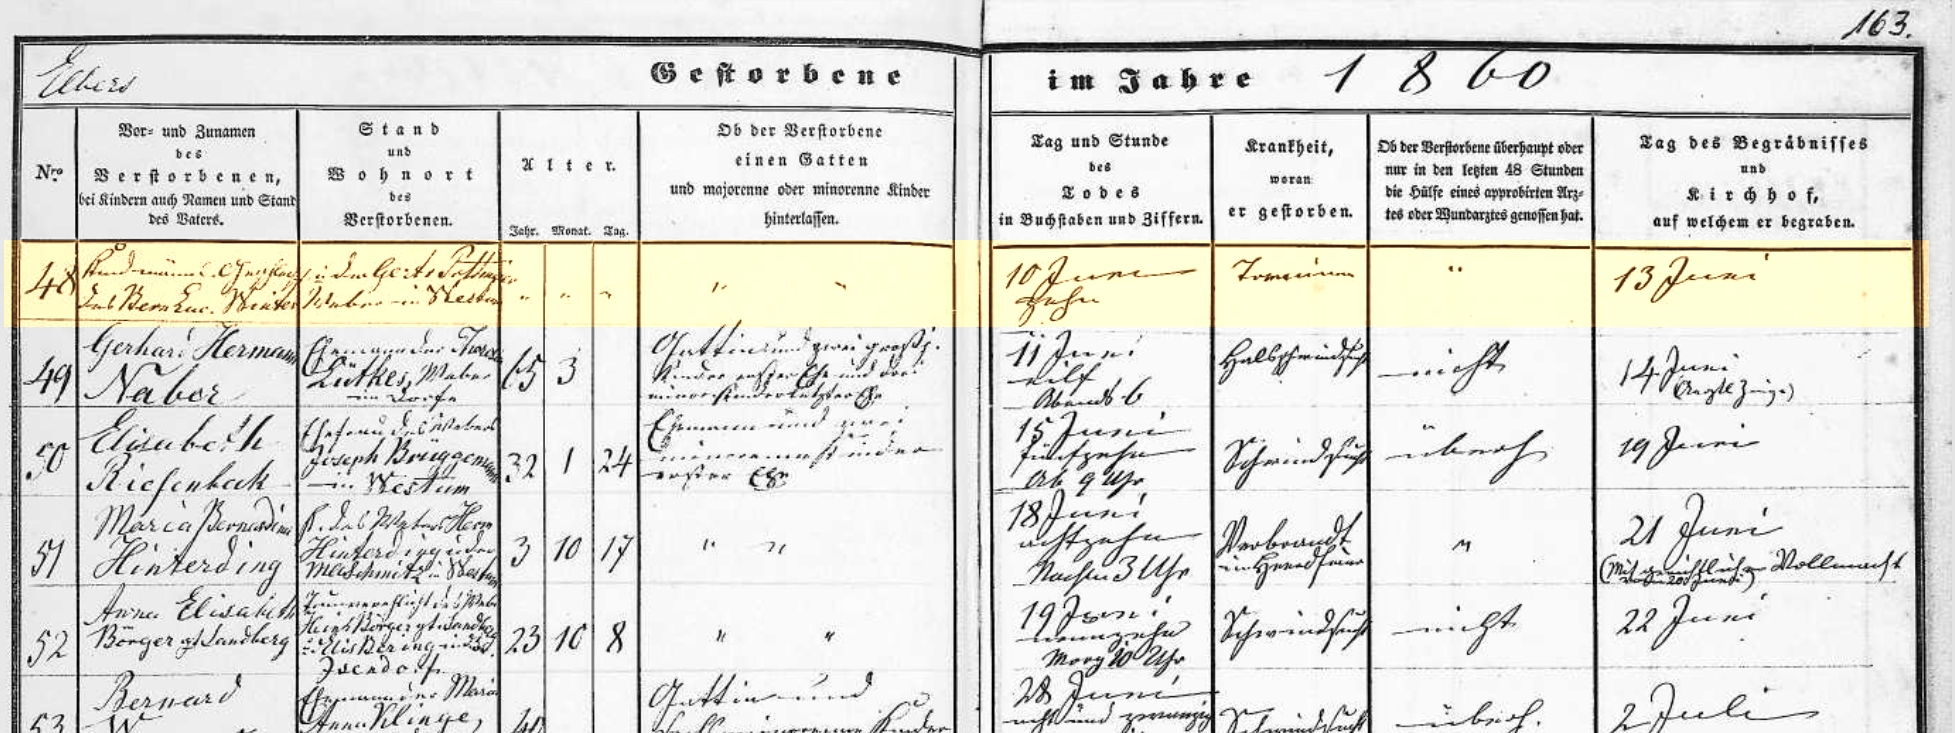 163.
Elbers
Gestorbene
im Jahre 1860
Nro.
Vor- und Zunamen
des
Verstorbenen,
bei Kindern auch Namen und Stand
des Vaters.
Stand
und
Wohnort
des
Verstorbenen.
Alter.
Jahr. Monat. Tag.
Ob der Verstorbene
einen Gatten
und majorenne oder minorenne Kinder
hinterlassen.
Tag und Stunde
des
Todes
in Buchstaben und Ziffern.
Krankheit,
woran
er gestorben.
Ob der Verstorbene überhaupt oder
nur in den letzten 48 Stunden
die Hülfe eines approbirten Arz-
tes oder Wundarztes genossen hat.
Tag des Begräbnisses
und
Kirchhof,
auf welchem er begraben.
48
Kind männl.
des Bern Luc. Winter
u der Gert
Weber in Westum
" " "
" "
10 Juni
zehn
"
13 Juni
49
Gerhard Hermann
Nabor
Ehemann der
Lütkes, Weber
im Dorfe
65 3
Gattin und zwei großj.
Kinder erster Ehe und drei
minor Kinder letzter Ehe
11 Juni
eilf
Abends 6
Halsschwindsucht
nicht
14 Juni
50
Elisabeth
Riefenbeck
Ehefrau des Webers
Joseph Brüggemann
in Westum
32 1 24
Ehemann und zwei
minorenne Kinder
erster Ehe
15 Juni
fünfzehn
Ab. 9 Uhr
Schwindsucht
überh.
19 Juni
51
Maria Bernardina
Hinterding
K. des Webers Herm
Hinterding u der
in Westum
3 10 17
" "
18 Juni
achtzehn
Nachm 3 Uhr
Verbrandt
im Heerdfeuer
"
21 Juni
(Mit gerichtlicher Vollmacht
vom 20 Juni)
52
Anna Elisabeth
Börger gt Sandberg
Börger gt Sandberg
Isendorf
23 10 8
" "
19 Juni
neunzehn
Morg 10 Uhr
Schwindsucht
nicht
22 Juni
53
Bernard
Ehemann der Maria
Anna Klinge,
Gattin und
minorenne Kinder
28 Juni
acht und zwanzig
Schwindsucht
überh.
2 Juli